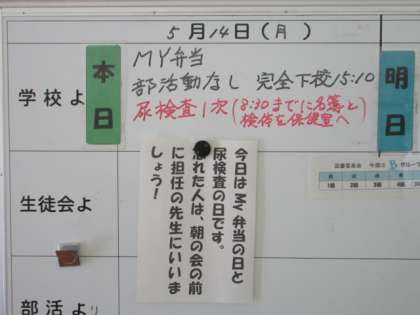 5月14日(月)
本日
明日
学校よ
MY弁当
部活動なし 完全下校15:10
尿検査1次(8:30までに名簿と
検体を保健室へ
今日はMy弁当の日と
尿検査の日です。
忘れた人は、朝の会の前
に担任の先生にいいま
しょう!
生徒会よ
部活より